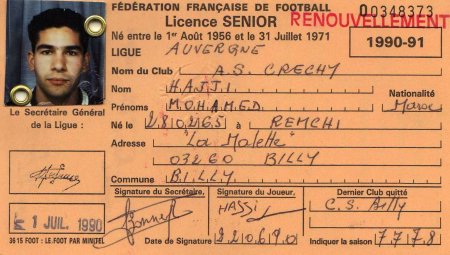 FÉDÉRATION FRANÇAISE DE FOOTBALL
00348373
Licence SENIOR
RENOUVELLEMENT
Né entre le 1er Août 1956 et le 31 Juillet 1971
1990-91
LIGUE AUVERGNE
Nom du Club A.S. CRECHY
Nom HAJJI
Nationalité
Prénoms MOHAMED
Maroc
Le Secrétaire Général
de la Ligue :
Né le 280265 à REMCHI
Adresse "La Malette"
03260 BILLY
Commune BILLY
Signature du Secrétaire,
Signature du Joueur,
Dernier Club quitté
HASSI
C.S. Billy
1 JUIL. 1990
3615 FOOT : LE FOOT PAR MINITEL
Date de Signature 220690
Indiquer la saison 7778